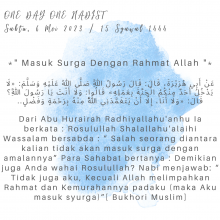 ONE DAY ONE HADIST
Sabtu, 6 Mei 2023 / 15 Syawal 1444
*" Masuk Surga Dengan Rahmat Allah "*
عَنْ أَبِي هُرَيْرَةَ، قَالَ: قَالَ رَسُولُ اللَّهِ صَلَّى اللَّهُ عَلَيْهِ وَسَلَّمَ: «لَا
يُدْخِلُ أَحَدًا مِنْكُمُ الْجَنَّةَ بِعَمَلِهِ» قَالُوا: وَلَا أَنْتَ يَا رَسُولَ اللَّهِ؟
قَالَ: «وَلَا أَنَا، إِلَّا أَنْ يَتَغَمَّدَنِيَ اللَّهُ مِنْهُ بِرَحْمَةٍ وَفَضْلٍ..
Dari Abu Hurairah Radhiyallahu'anhu Ia
berkata : Rosulullah Shalallahu'alaihi
Wassalam bersabda : " Salah seorang diantara
kalian tidak akan masuk surga dengan
amalannya" Para Sahabat bertanya : Demikian
juga Anda wahai Rosulullah? Nabi menjawab: "
Tidak juga aku, Kecuali Allah melimpahkan
Rahmat dan Kemurahannya padaku (maka Aku
masuk syurga)"( Bukhori Muslim)